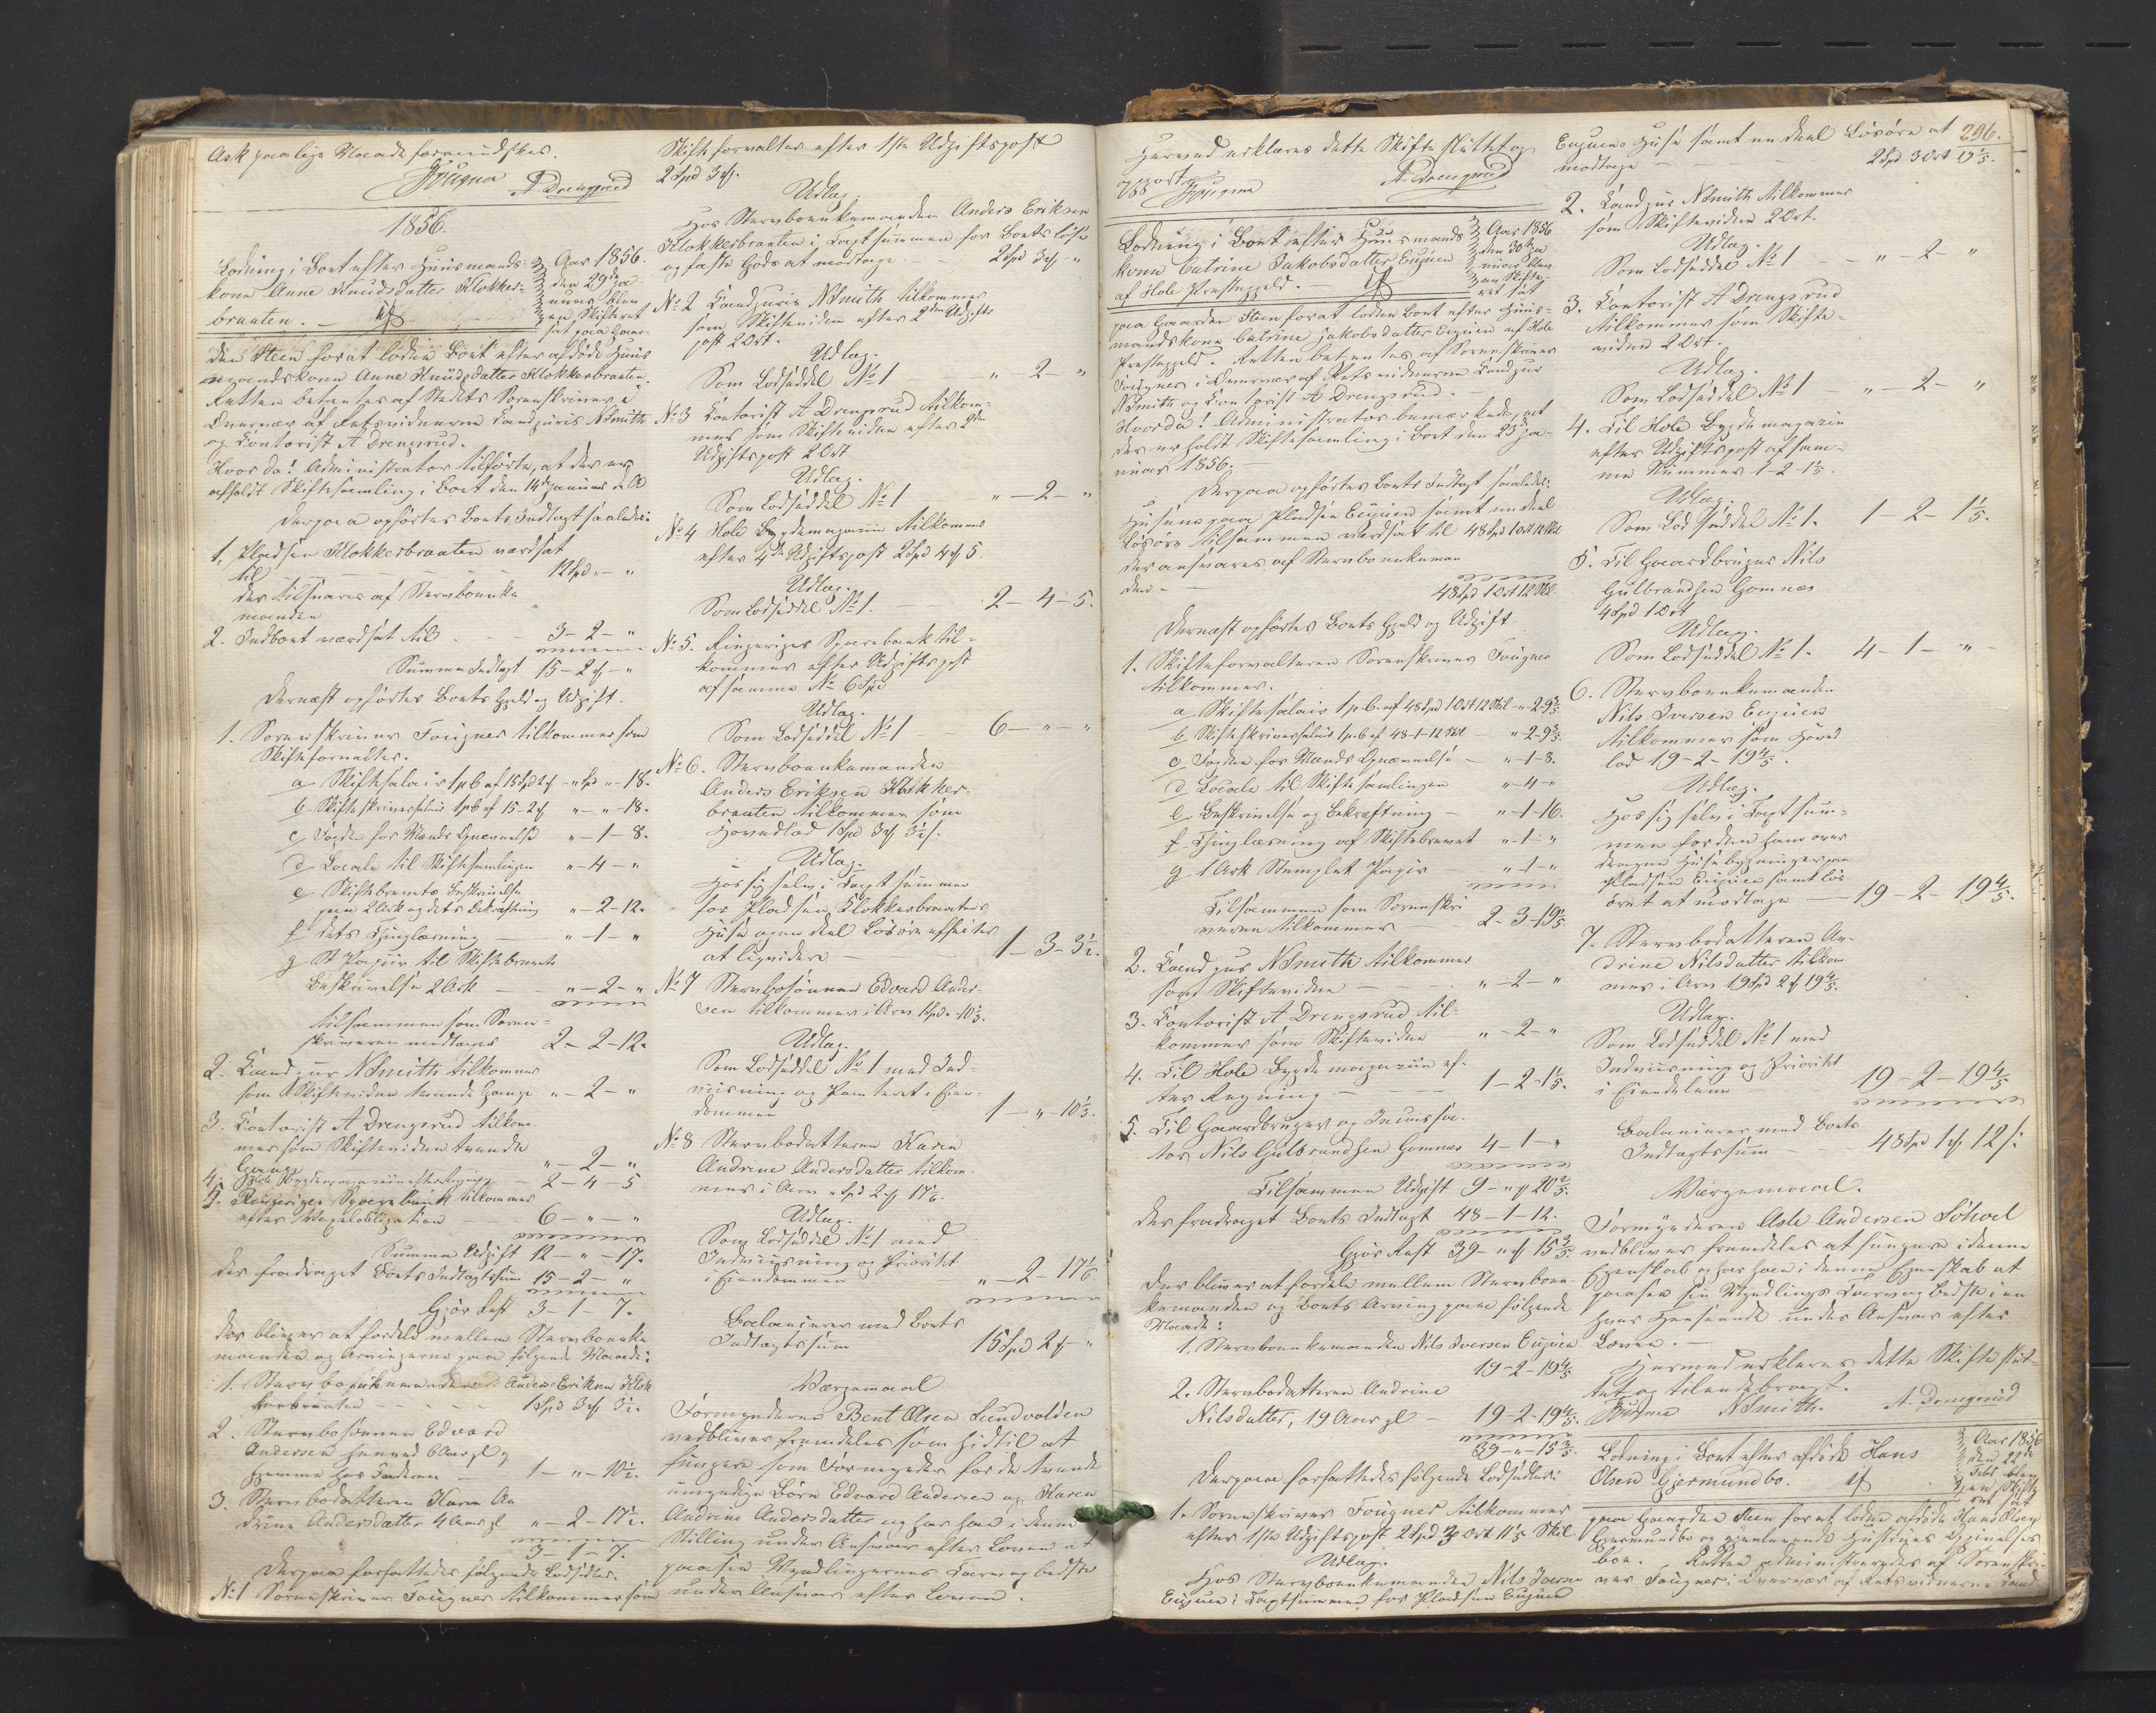 Ask paa lige Maade forevidskes.
Fougner A Drengsrud
1856.
Lodning i Boet efter Huusmands-
kone Anne Knudsdatter Klokker-
braaten.
Aar 1856.
den 29de Ja
nuar blev
en Skifteret
sat paa Gaar-
den Steen for at lodde Boet efter afdöde Huus
mandskone Anne Knudsdatter Klokkerbraaten.
Retten betjentes af Stedets Sorenskriver i
Overvær af Retsvidnerne Candjuris N Smith
og Contorist A Drengsrud.
Hvorda! Administrator tilförte, at der er
afholdt Skiftesamling i Boet den 14de Januar d. A
Derpaa opförtes Boets Indtægt saaledes:
1. Pladsen Klokkerbraaten værdsat
til 12 Spd " - "
der tilsvares af Stervboenke
manden
2. Indboet værdsat til 3 - 2 - "
Summa Indtægt 15 - 2 - "
Dernæst opförtes Boets Gjeld og Udgift.
1. Sorenskriver Fougner tilkommer som
Skifteforvalter.
a Skiftesalair 1 p C af 15 Spd 2 " Spd " - 18.
b Skifteskriversalair 1 p C af 15 - 2 " - " - 18.
c Fogden for Mænds Opnævnelse " - 1 - 8.
d Locale til Skiftesamlingen " - 4 - "
e Skiftebrevets Beskrivelse
paa 2 Ark og dets Bekræftning " - 2 - 12.
f dets Thinglæsning " - 1 - "
g St Papiir til Skiftebrevets
Beskrivelse 2 Ark " - 2 - "
tilsammen som Soren-
skriveren modtager 2 - 2 - 12.
2. Candjur N Smith tilkommer
som Skiftevidne tvende Gange " - 2 - "
3. Contorist A Drengsrud tilkom
mer som Skiftevidne tvende
Gange " - 2 - "
4. Hole Bygdemagazin efter Regning 2 - 4 - 5
5. Ringeriges Sparebank tilkommer
efter Vexelobligation 6 - " - "
Summa Udgift 12 - " - 17.
der fradraget Boets Indtægtssum 15 - 2 - "
Gjör Rest 3 - 1 - 7.
der bliver at fordele mellem Stervboenke
manden og Arvingerne paa fölgende Maade:
1. Stervboenkemanden Anders Eriksen Klok
kerbraaten 1 Spd 3 3½.
2. Stervbosönnen Edvard
Andersen henved 6 Aar gl og
hjemme hos Faderen 1 - " - 10½.
3. Sterbodatteren Karen An
drine Andersdatter 4 Aar gl " - 2 - 17½.
3 - 1 - 7.
Derpaa forfattedes fölgende Lodsedler.
No 1 Sorenskriver Fougner tilkommer som
Skifteforvalter efter 1ste Udgiftspost
2 Spd 3
Udlag.
Hos Sterboenkemanden Anders Eriksen
Klokkerbraaten i Taxtsummen for Boets löse
og faste Gods at modtage 2 Spd 3 "
No 2 Candjuris N Smith tilkommer
som Skiftevidne efter 2den Udgifts
post 2 Ort.
Udlag.
Som Lodseddel No 1 " - 2 - "
No 3 Contorist A Drengsrud tilkom-
mer som Skiftevidne efter 2den
Udgiftspost 2 Ort
Udlag.
Som Lodseddel No 1 " - 2 - "
No 4 Hole Bygdemagazin tilkommer
efter 4de Udgiftspost 2 Spd 4 5.
Udlag.
Som Lodseddel No 1. 2 - 4 - 5.
No 5. Ringeriges Sparebank til-
kommer efter Udgiftspost
af samme No 6 Spd
Udlag.
Som Lodseddel No 1 6 - " - "
No 6. Sterboenkemanden
Anders Eriksen Klokker-
braaten tilkommer som
Hovedlod 1 Spd 3 3½ s.
Udlag.
Hos sig selv i Taxtsummen
for Pladsen Klokkerbraatens
Huse og en deel Lösöreeffecter
at liqvidere 1 - 3 - 3½.
No 7 Sterbosönnen Edvard Ander-
sen tilkommer i Arv 1 Spd " 10⅓.
Udlag.
Som Lodseddel No 1 med Ind-
viisning og Panteret i Eien-
dommen 1 - " - 10⅓.
No 8 Sterbodatteren Karen
Andrine Andersdatter tilkom-
mer i Arv " Spd 2 17⅙.
Udlag.
Som Lodseddel No 1 med
Indviisning og Prioritet
i Eiendommen " - 2 - 17⅙.
Balancerer med Boets
Indtægtssum 15 Spd 2 "
Værgemaal
Formynderen Bent Olsen Sundvolden
vedbliver fremdeles som hidtil at
fungere som Formynder for de tvende
umyndige Börn Edvard Andersen og Karen
Andrine Andersdatter og har han i denne
Stilling under Ansvar efter Loven at
paasee Myndlingernes Tarv og bedste
under Ansvar efter Loven.
296.
Hermed erklæres dette Skifte sluttet og
Fougner A. Drengsrud
Lodning i Boet efter Huusmands
kone Catrine Jakobsdatter Euguen
af Hole Prestegjeld.
Aar 1856
den 30te Ja
nuar blev
en Skifte-
ret sat
paa Gaarden Steen for at lodde Boet efter Huus-
mandskone Catrine Jakobsdatter Euguen af Hole
Prestegjeld. Retten betjentes af Sorenskriver
Fougner i Overvær af Retsvidnerne Candjur
N Smith og Contorist A Drengsrud.
Hvorda! Administrator bemærkede, at
der er holdt Skiftesamling i Boet den 23 Ja-
nuar 1856.
Derpaa opförtes Boets Indtægt saaledes:
Husene paa Pladsen Euguen samt en deel
Lösöre tilsammen værdsat til 48 Spd 1 Ort 12 Skil
der ansvares af Sterboenkeman
den. 48 Spd 1 Ort 12 Skil.
Dernæst opförtes Boets Gjeld og Udgift
1. Skifteforvalteren Sorenskriver Fougner
tilkommer.
a Skiftesalair 1 p C af 48 Spd 1 Ort 12 Skil " - 2 - 9⅗
b Skifteskriversalair 1 p C af 48 - 1 - 12 Skil " - 2 - 9⅗.
c Fogden for Mænds Opnævnelse " - 1 - 8.
d Locale til Skiftesamlingen " - 4 - "
e Beskrivelse og Bekræftning " - 1 - 16.
f Thinglæsning af Skiftebrevet " - 1 - "
g 1 Ark Stemplet Papir " - 1 - "
Tilsammen som Sorenskri
veren tilkommer 2 - 3 - 19⅕.
2. Candjur N Smith tilkommer
som Skiftevidne " - 2 - "
3. Contorist A Drengsrud til-
kommer som Skiftevidne " - 2 - "
4. Til Hole Bygdemagazin ef-
ter Regning 1 - 2 - 1⅕.
5. Til Gaardbruger og
Nils Gulbrandsen Gomnæs 4 - 1 - "
Tilsammen Udgift 9 - " 20⅖.
der fradraget Boets Indtægt 48 - 1 - 12.
Gjör Rest 39 - " 15⅗
der bliver at fordele mellem Sterboen-
kemanden og Boets Arving paa fölgende
Maade:
1. Sterboenkemanden Nils Iversen Euguen
19 - 2 - 19⅘
2. Sterbodatteren Andrine
Nilsdatter, 19 Aar gl 19 - 2 - 19⅘.
39 - " - 15⅗.
Derpaa forfattedes fölgende Lodsedler:
1. Sorenskriver Fougner tilkommer
efter 1ste Udgiftspost 2 Spd 3 Ort Skil
Udlag.
Hos Sterboenkemanden Nils Iversen
Euguen i Taxtsummen for Pladsen Euguen
Euguens Huse samt en deel Lösöre at
modtage 2 Spd 3 Ort 19⅕.
2. Candjur N Smith tilkommer
som Skiftevidne 2 Ort.
Udlag.
Som Lodseddel No 1 " - 2 - "
3. Contorist A Drengsrud
tilkommer som Skifte-
vidne 2 Ort.
Udlag.
Som Lodseddel No 1 " - 2 - "
4. Til Hole Bygdemagazin
efter Udgiftspost af sam-
me Nummer 1 - 2 - 1⅕.
Udlag.
Som Lodseddel No 1. 1 - 2 - 1⅕.
5. Til Gaardbruger Nils
Gulbrandsen Gomnæs
4 Spd 1 Ort
Udlag.
Som Lodseddel No 1. 4 - 1 - "
6. Sterboenkemanden
Nils Iversen Euguen
tilkommer som Hoved
lod 19 - 2 - 19⅘.
Udlag.
Hos sig selv i Taxtsum-
men for den ham over
dragne Husebygninger paa
Pladsen Euguen samt Lös-
öret at modtage 19 - 2 - 19⅘.
7. Sterbodatteren An-
drine Nilsdatter tilkom
mer i Arv 19 Spd 2 19⅘.
Udlag.
Som Lodseddel No 1 med
Indviisning og Prioritet
i Eiendelene 19 - 2 - 19⅘
Balancerer med Boets
Indtægtssum 48 Spd 1 12 s:
Værgemaal.
Formynderen Asle Andersen Löhol
vedbliver fremdeles at fungere i denne
Egenskab og har han i denne Egenskab at
paasee sin Myndlings Tarv og Bedste i en
hver Henseende under Ansvar efter
Loven.
Hermed erklæres dette Skifte slut-
tet og tilendebragt.
Fougner N Smith. A. Drengsrud
Lodning i Boet efter afdöde Hans
Olsen Gjermundbo.
Aar 1856
den 22de
Febr blev
en Skifte
ret sat
paa Gaarden Steen for at lodde afdöde Hans Olsen
Gjermundbo og gjenlevende Hustrues
boe. Retten administreredes af Sorenskri-
ver Fougner i Overvær af Retsvidnerne Cand